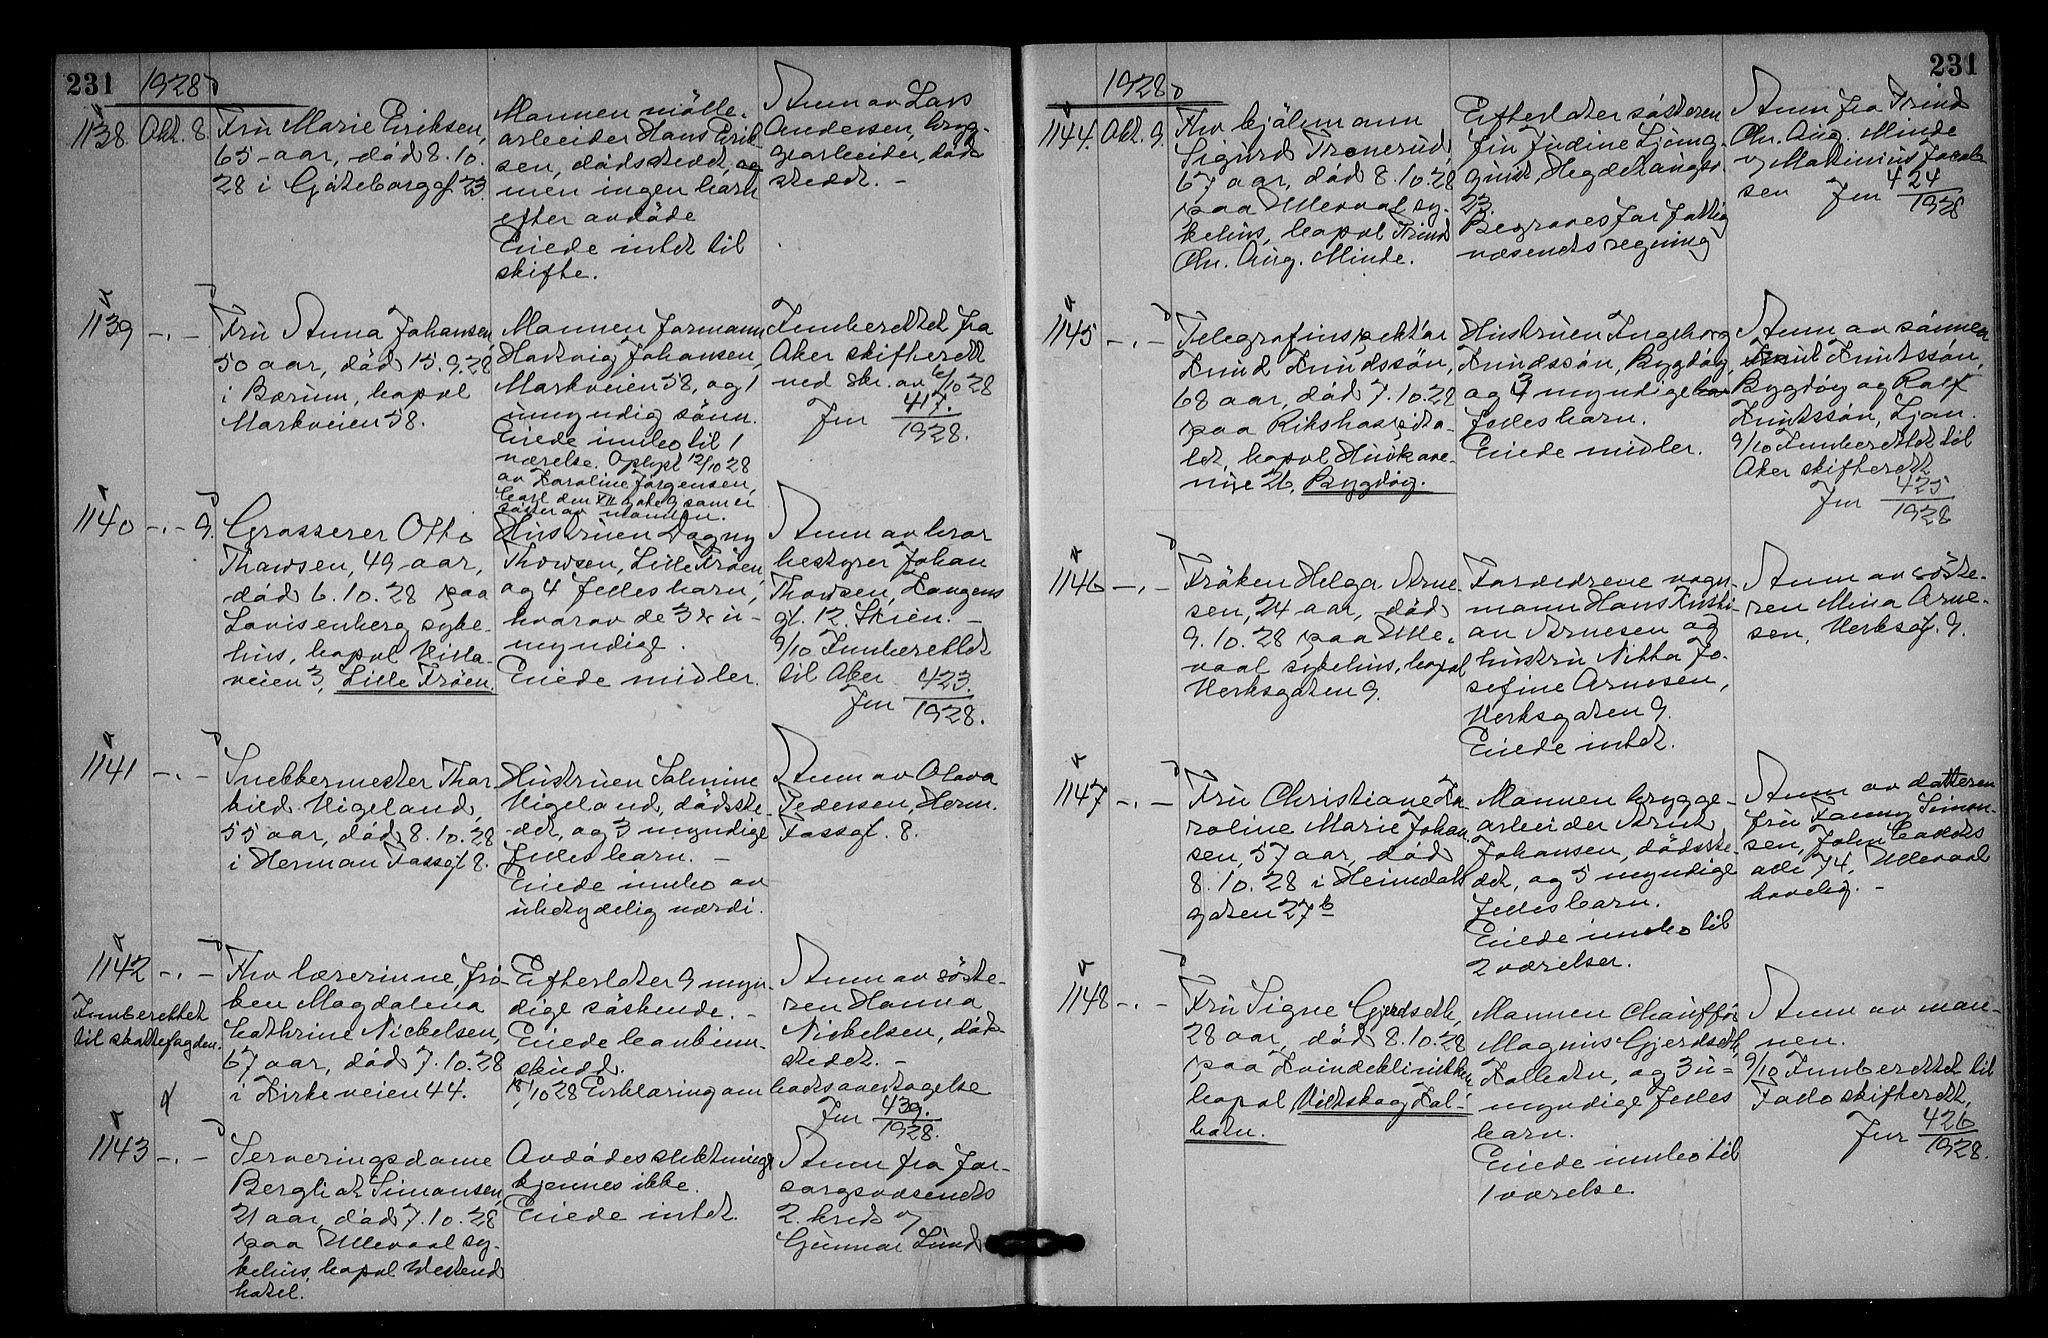 231
1928
1138. Okt. 8.
Fru Marie Eriksen,
65 aar, död 8.10.
28 i Göteborggt. 23.
Mannen mölle-
arbeider Hans Erik-
sen, dödsstedet, og
men ingen barn
efter avdöde
Eiede intet til
skifte.
Anm av Lars
Andersen, bryg-
gearbeider, död-
stedet. -
1139 -.-
Fru Anna Johansen,
50 aar, död 15.9.28
i Bærum, bopel
Markveien 58.
Mannen formann
Hartvig Johansen,
Markveien 58, og 1
umyndig sönn.
Eiede innbo til 1
værelse. Oplyst 12/10 28
av Karoline Jörgensen,
Carl den XII gate 9 som er
söster av mannen.
Innberettet fra
Aker skifterett
ved skr. av 6/10 28
Jnr 417.
1928.
1140 -.- 9.
Grosserer Otto
Thowsen, 49 aar,
död 6.10.28 paa
Lovisenberg syke-
hus, bopel Villa-
veien 3, Lille Fröen.
Hustruen Dagny
Thowsen, Lille Fröen,
og 4 felles barn,
hvorav de 3 er u-
myndige.
Eiede midler.
Anm av bror
bestyrer Johan
Thowsen, Langens
gt. 12, Skien. -
9/10 Innberettet
til Aker
Jnr 423.
1928.
1141 -.-
Snekkermester Thor-
bild Vigeland,
55 aar, död 8.10.28
i Herman Fossgt 8.
Hustruen Salmine
Vigeland, dödsste-
det, og 3 myndige
felles barn. -
Eiede innbo av
ubetydelig værdi.
Anm av Olava
Pedersen, Herm.
Fossgt. 8.
1142 -.-
Innberettet
til skattefogden.
Fhv lærerinne, frö-
ken Magdalena
Cathrine Nickelsen,
67 aar, död 7.10.28
i Kirkeveien 44.
Efterlater 9 myn-
dige söskende. -
Eiede bankinn-
skudd.
15/10 28 Erklæring om boets overtagelse
Anm av söste-
ren Hanna
Nickelsen, död-
stedet. -
Jnr 439.
1928.
1143 -.-
Serveringsdame
Bergliot Simonsen,
21 aar, död 7.10.28
paa Ullevaal sy-
kehus, bopel Westend
hotel.
Avdödes slektninger
kjennes ikke.
Eiede intet.
Anm fra for-
sorgsvæsenets
2. kreds v
Gunnar Lund
231
1928
1144. Okt. 9.
Fhv hjälmann
Sigurd Tronerud,
67 aar, död 8.10.28
paa Ullevaal sy-
kehus, bopel Prind
Chr. Aug. Minde.
Efterlater söstren
fru Judine Ljung-
quist, Hegdehaugsv.
23.
Begraves for fattig
væsenets regning
Anm fra Prind
Chr. Aug. Minde
v Martinius Jacob
sen Jnr 424
1928
1145 -.-
Telegrafinspektör
Knud Knudssön,
68 aar, död 7.10.28
paa Rikshospita-
let, bopel Huk ave-
nue 26, Bygdöy.
Hustruen Ingeborg
Knudssön, Bygdöy,
og 3 myndige
felles barn.
Eiede midler.
Anm av sönnen
Knutssön,
Bygdöy og Ralf
Knutssön, Ljan.
9/10 Innberettet til
Aker skifterett
Jnr 425
1928
1146 -.-
Fröken Helga Arne-
sen, 24 aar, död
9.10.28 paa Ulle-
vaal sykehus, bopel
Verksgaten 9.
Foreldrene vogn-
mann Hans Kristi-
an Arnesen og
hustru Nikka Jo-
sefine Arnesen,
Verksgaten 9.
Eiede intet.
Anm av söste-
ren Mina Arne-
sen, Verksgt. 9.
1147 -.-
Fru Christiane Ka-
roline Marie Johan-
sen, 57 aar, död
8.10.28 i Heimdals
gaten 27b
Mannen brygge-
arbeider Arnt
Johansen, dödsste-
det, og 5 myndige
felles barn.
Eiede innbo til
2 værelser.
Anm av datteren
fru Fanny Simon-
sen, John Colletts
alle 74, Ullevaal
haveby. -
1148 -.-
Fru Signe Gjerdseth,
28 aar, död 8.10.28
paa Kvindeklinikken,
bopel Vidtskog Kol-
botn.
Mannen Chaufför
Magnus Gjerdseth,
Kolbotn, og 3 u-
myndige felles
barn.
Eiede innbo til
1 værelse.
Anm av man-
nen.
9/10 Innberettet til
Follo skifterett,
Jnr 426
1928.